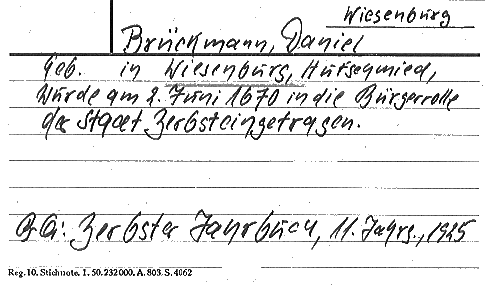 Wiesenburg
Brückmann, Daniel
Geb. in Wiesenburg, Hufschmied,
wurde am 2. Juni 1670 in die Bürgerrolle
der Stadt Zerbst eingetragen.
Zerbster Jahrbuch, 11. Jahrg., 1925
Reg. 10. Stichnote. I. 50. 232000. A. 803. S. 4062